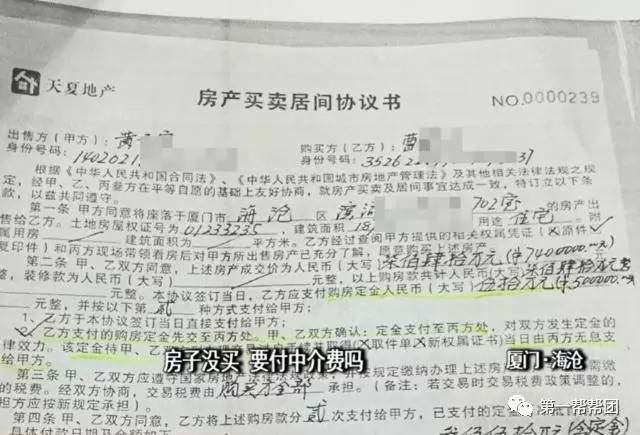 天夏地产
房产买卖居间协议书
NO.0000239
出售方(甲方):黄
购买方(乙方):
身份号码:1402021
身份号码:352622
根据《中华人民共和国合同法》、《中华人民共和国城市房地产管理法》及其他相关法律法规之规
定,经甲、乙、丙叁方在平等自愿的基础上友好协商,就房产买卖及居间事宜达成一致,特订立以下条
款,以兹共同遵守。
第一条 甲方同意将座落于厦门市 海沧 区 702室 的房产出
售给乙方。土地房屋权证号为 01233235,建筑面积 用途 住宅。附
属用房 建筑面积为 平方米。乙方经过查阅甲方提供的相关权属凭证(☑原件
复印件)和丙方现场带领看房后对甲方所出售房产已充分了解,愿意购买上述房产。
第二条 甲、乙双方同意,上述房产成交价为人民币(大写)柒佰肆拾万元(¥7400000.
整,装修款为人民币(大写) 元整。以上购房款共计人民币(大写)柒佰肆拾万元
元整。本协议签订当日,乙方应支付购房定金人民币(大写)伍拾万元(¥500000.
元整,并按以下第 贰 种方式支付给甲方:
1、乙方于本协议签订当日直接支付给甲方;
2、乙方支付的购房定金先交至丙方处,甲、乙双方确认:定金支付至丙方处,对双方发生定金的
律效力。该定金待甲、乙 取件单 新权属证书)当日由丙方无息支
给甲方。
房子没买 要付中介费吗
厦门·海沧
第三条 甲、乙方应遵守国家房地 规定缴纳办理上述房
的税费。经双方协商,交易税费由 购买方全部 承担。(备注:若交易时交易税费政策调整的,
担方应按新规定承担)。
第四条 甲、乙方同意,乙方将上述购房款分 贰 次支付给甲方,已支付的定金
具体付款日期及金额如下
第一帮帮团